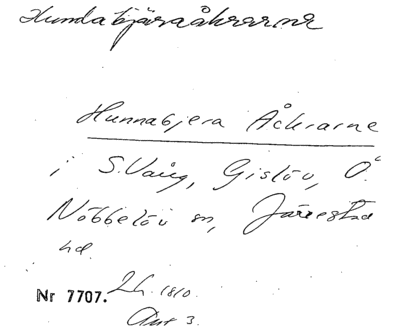 Hundabjäraåkrarna
Hunnabjera Åckrarne
i S. Vång, Gislöv, Ö.
Nöbbelöv sn, Järrestad
hd.
Nr 7707. LH. 1810.
Akt 3.